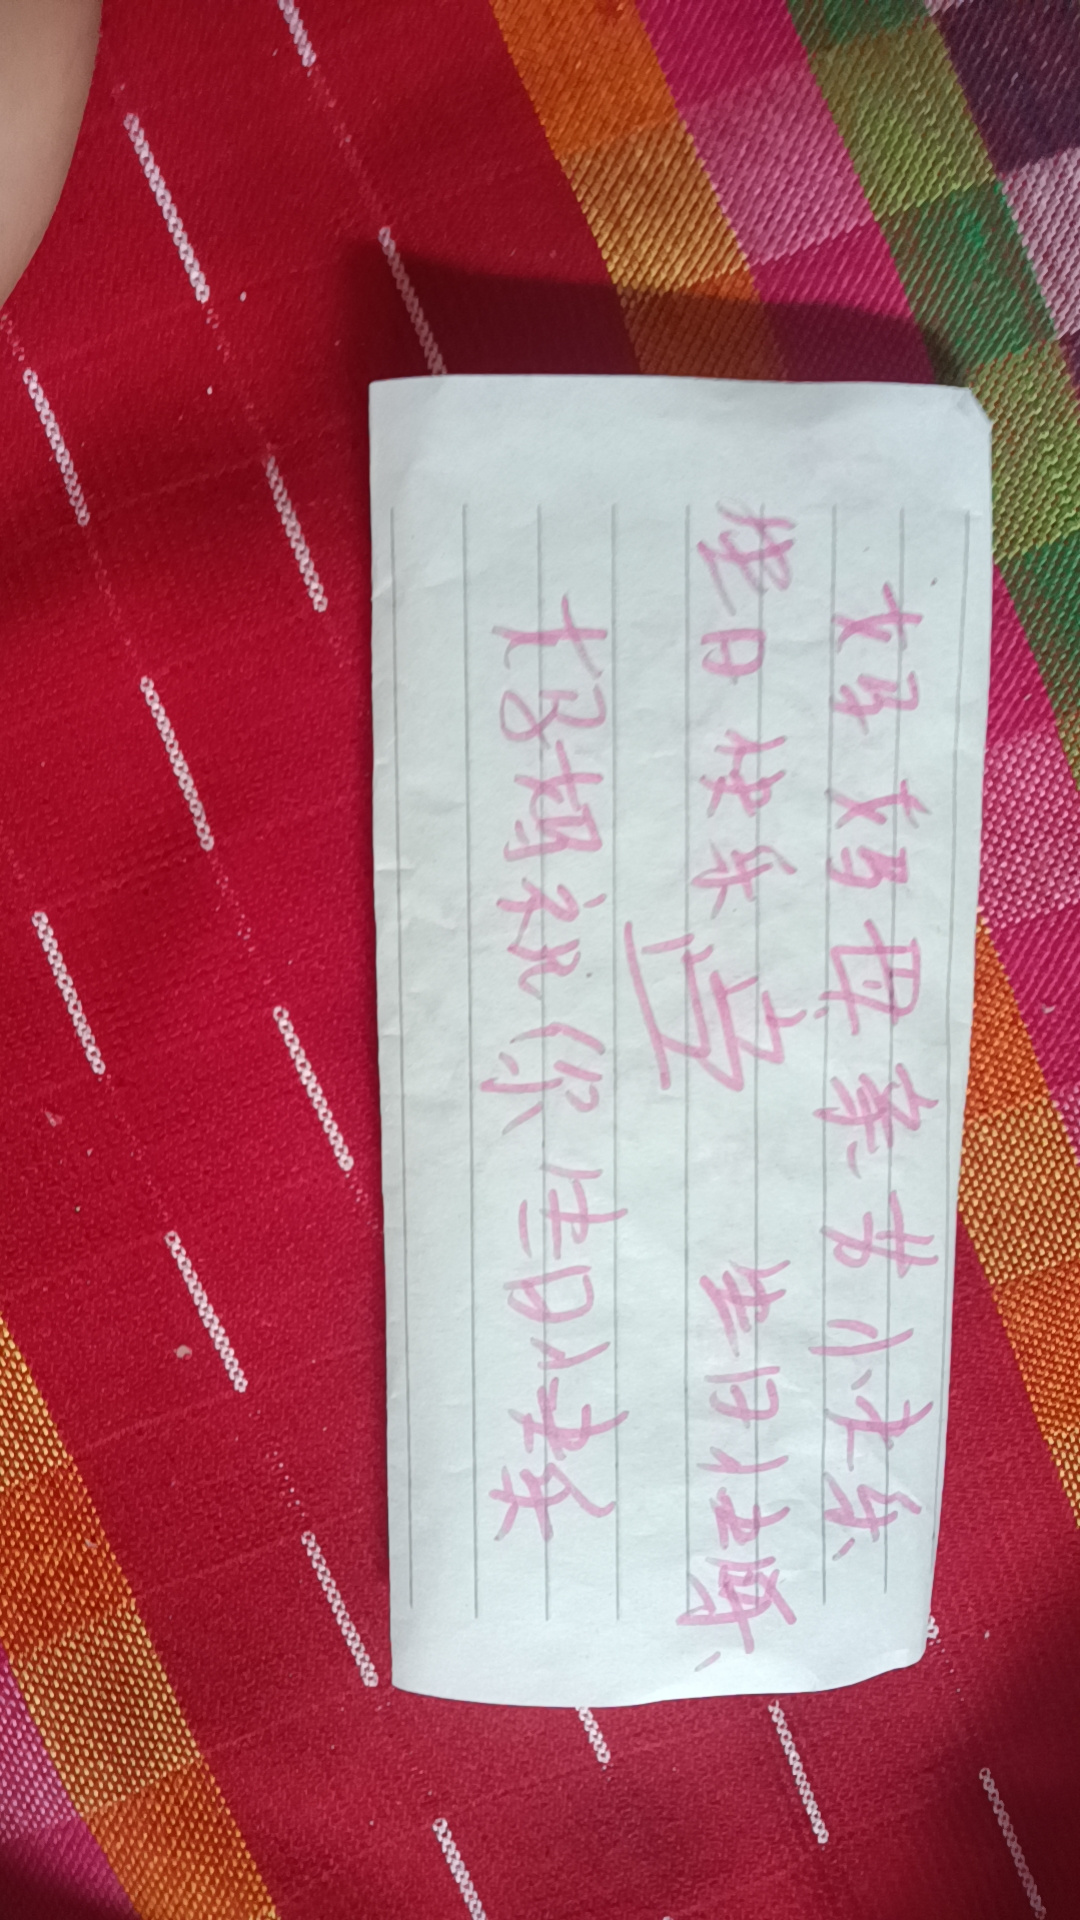 妈妈母亲节快乐
生日快乐 生日快乐
妈妈祝你生日快乐